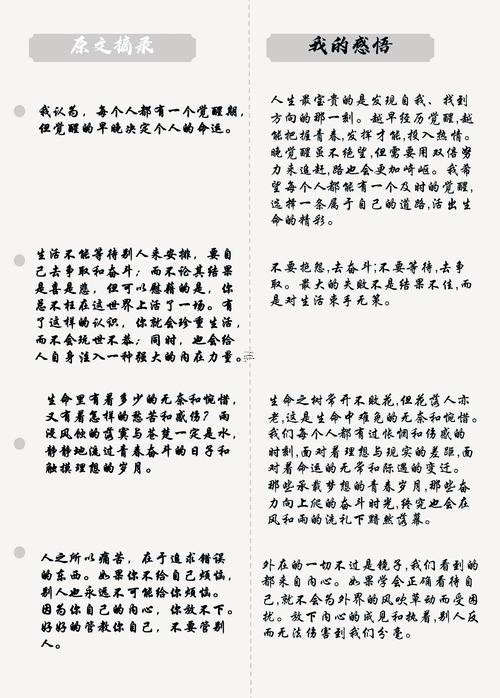 原文摘录
我认为，每个人都有一个觉醒期，
但觉醒的早晚决定个人的命运。
生活不能等待别人来安排，要自
己去争取和奋斗；而不论其结果
是喜是悲，但可以慰藉的是，你
总不枉在这世界上活了一场。有
了这样的认识，你就会珍重生活，
而不会玩世不恭；同时，也会给
人自身注入一种强大的内在力量。
生命里有着多少的无奈和惋惜，
又有着怎样的愁苦和感伤？雨
浸风蚀的落寞与苍楚一定是水，
静静地流过青春奋斗的日子和
触摸理想的岁月。
人之所以痛苦，在于追求错误
的东西。如果你不给自己烦恼，
别人也永远不可能给你烦恼。
因为你自己的内心，你放不下。
好好的管教你自己，不要管别
人。
我的感悟
人生最宝贵的是发现自我、找到
方向的那一刻。越早经历觉醒，越
能把握青春，发挥才能，投入热情。
晚觉醒虽不绝望，但需要用双倍努
力来追赶，路也会更加崎岖。我希
望每个人都能有一个及时的觉醒，
选择一条属于自己的道路，活出生
命的精彩。
不要抱怨，去奋斗；不要等待，去争
取。最大的失败不是结果不佳，而
是对生活束手无策。
生命之树常开不败花，但花落人亦
老，这是生命中难免的无奈和惋惜。
我们每个人都有过怅惘和伤感的
时刻，面对着理想与现实的差距，面
对着命运的无常和际遇的变迁。
那些承载梦想的青春岁月，那些奋
力向上爬的奋斗时光，终究也会在
风和雨的洗礼下黯然落幕。
外在的一切不过是镜子，我们看到的
都来自内心。如果学会正确看待自
己，就不会为外界的风吹草动而受困
扰。放下内心的成见和执着，别人反
而无法伤害到我们分毫。